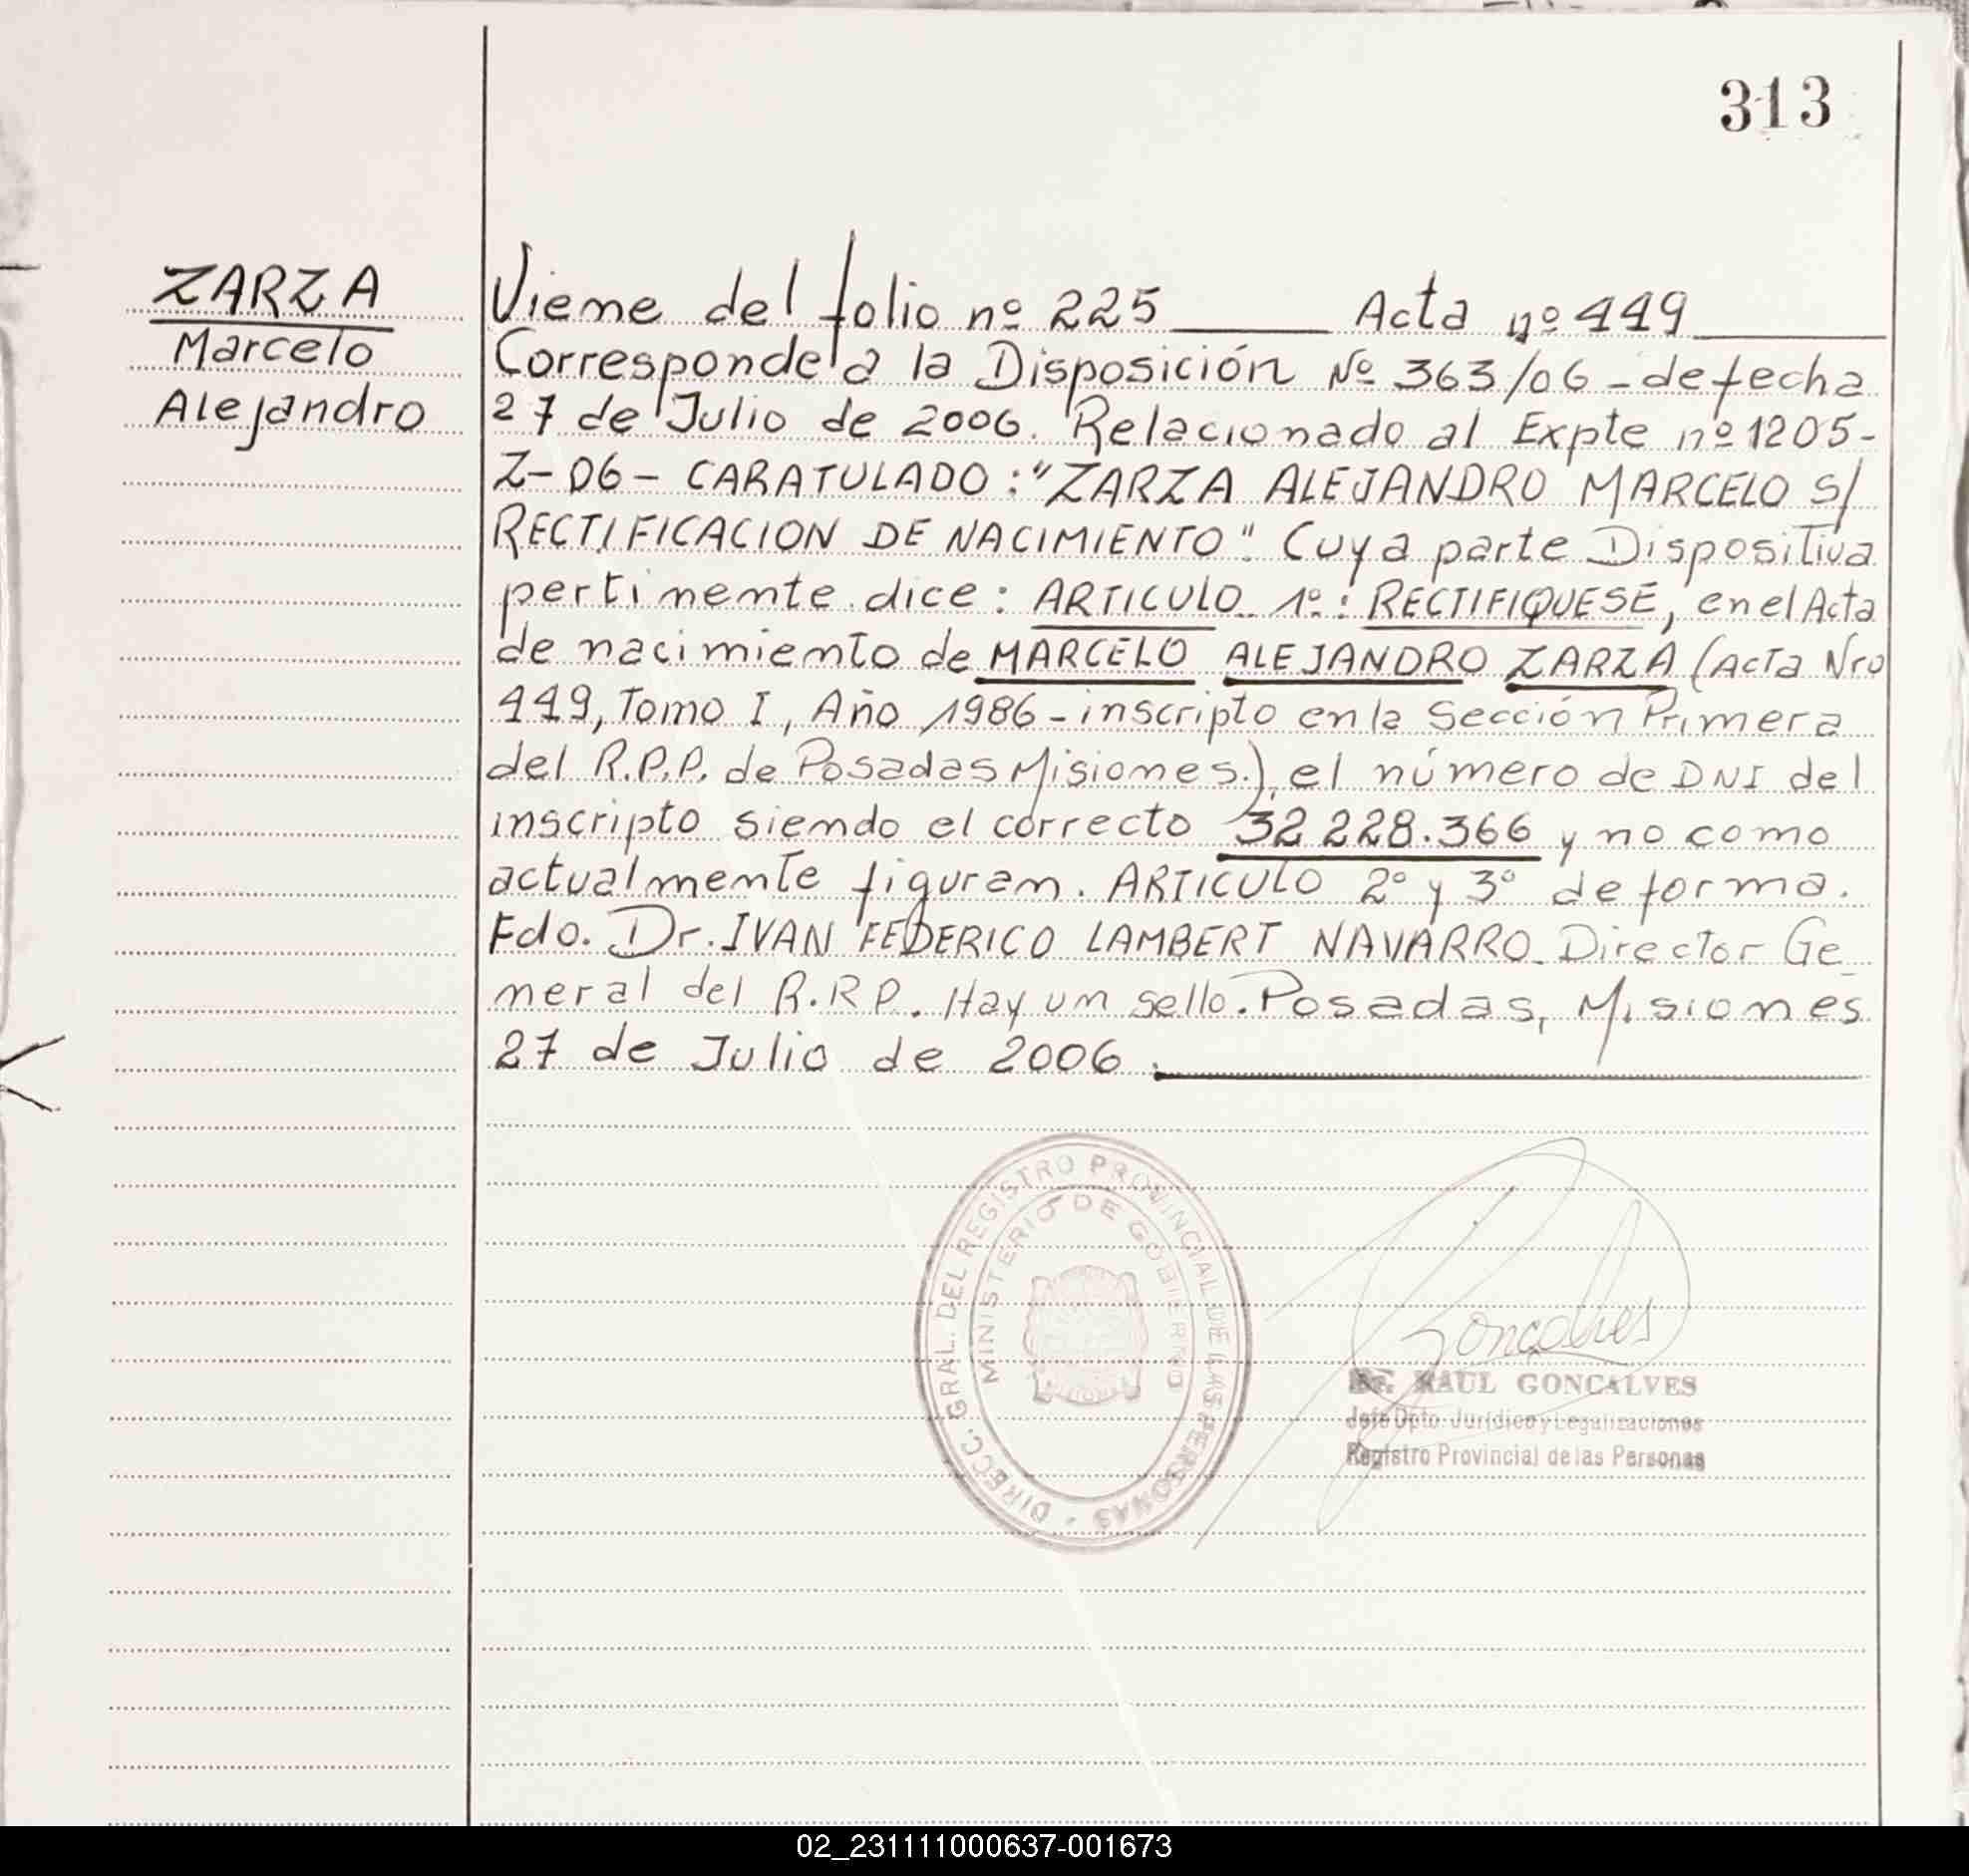 313
ZARZA
Marcelo
Alejandro
Viene del folio nº 225 ______ Acta nº 449 ______
Corresponde a la Disposición Nº 363/06 - de fecha
27 de Julio de 2006. Relacionado al Expte nº 1205-
Z-06 - CARATULADO: "ZARZA ALEJANDRO MARCELO S/
RECTIFICACION DE NACIMIENTO". Cuya parte Dispositiva
pertinente dice: ARTICULO 1º: RECTIFIQUESE, en el Acta
de nacimiento de MARCELO ALEJANDRO ZARZA (Acta Nro
449, Tomo I, Año 1986 - inscripto en la Sección Primera
del R.P.P. de Posadas Misiones.), el número de DNI del
inscripto siendo el correcto 32 228.366 y no como
actualmente figuran. ARTICULO 2º y 3º de forma.
Fdo. Dr. IVAN FEDERICO LAMBERT NAVARRO. Director Ge_
neral del R.R.P. Hay un sello. Posadas, Misiones
27 de Julio de 2006.
DIRECC. GRAL. DEL REGISTRO PROVINCIAL DE LAS PERSONAS -
MINISTERIO DE GOBIERNO
Goncalves
Dr. RAUL GONCALVES
Jefe Dpto. Jurídico y Legalizaciones
Registro Provincial de las Personas
02_231111000637-001673